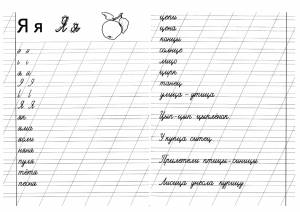 Я я Я я
я
Я Я
як
яма
няня
тётя
песня
цепи
цена
концы
солнце
лицо
цирк
танец
улица - птица
Цып-цып цыплёнок
У купца ситец.
Прилетели птицы-синицы
Лисица унесла курицу